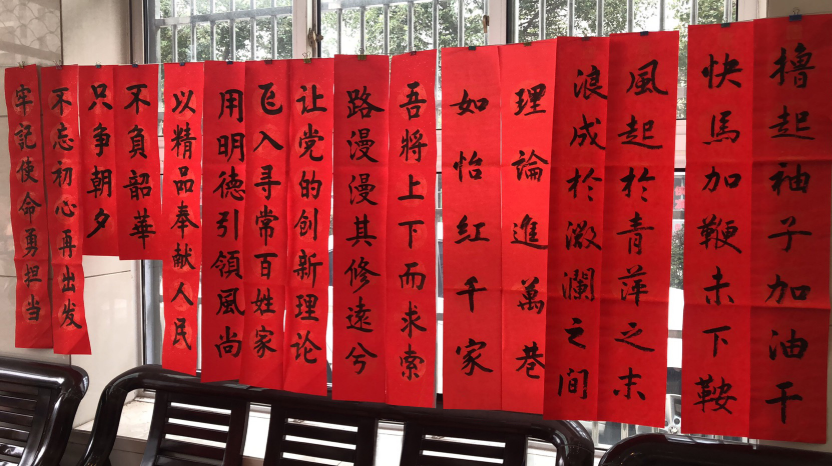 撸起袖子加油干
快馬加鞭未下鞍
風起於青萍之末
浪成於微瀾之间
理論進萬巷
如怡红千家
吾將上下而求索
路漫漫其修遠兮
让党的创新理论
飞入寻常百姓家
用明德引領風尚
以精品奉献人民
不负韶華
只争朝夕
不忘初心再出发
牢记使命勇担当